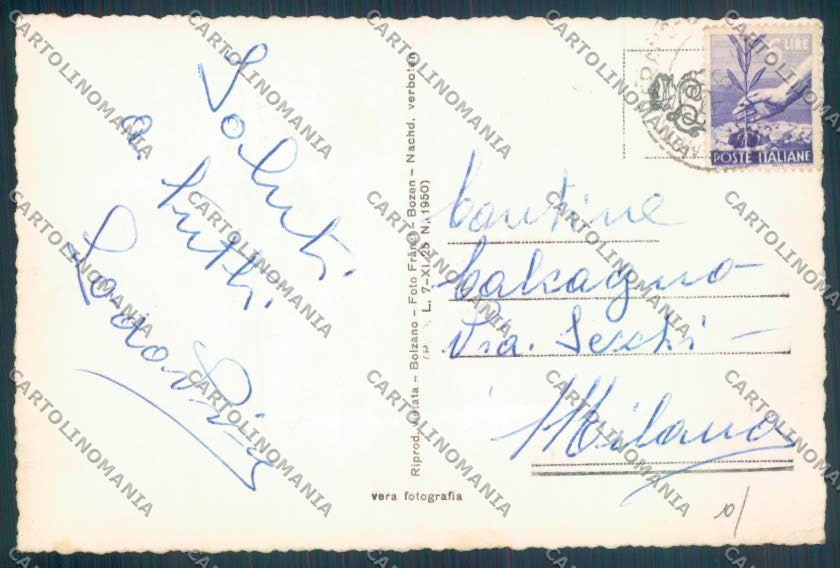 Saluti
a tutti.
Lodovico
Riprod. vietata – Bolzano – Foto Fränzl – Bozen – Nachd. verboten
L. 7-XI-25 N. 1950)
vera fotografia
LIRE
POSTE ITALIANE
Cantine
Calcagno
Via Secchi –
Milano
10/
CARTOLINOMANIA